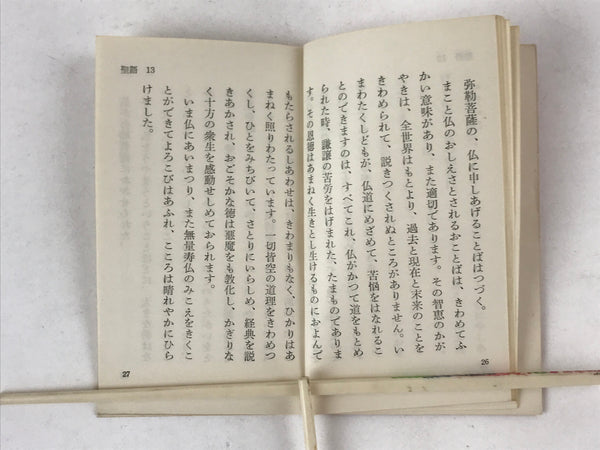 弥勒菩薩の、仏に申しあげることばはつづく。
まこと仏のおしえさとされるおことばは、きわめてふ
かい意味があり、また適切であります。その智恵のかが
やきは、全世界はもとより、過去と現在と未来のことを
きわめられて、説きつくされぬところがありません。い
まわたくしどもが、仏道にめざめて、苦悩をはなれるこ
とのできますのは、すべてこれ、仏がかつて道をもとめ
られた時、謙譲の苦労をはげまれた、たまものでありま
す。その恩徳はあまねく生きとし生けるものにおよんで
26
聖語 13
もたらされるしあわせは、きわまりもなく、ひかりはあ
まねく照りわたっています。一切皆空の道理をきわめつ
くし、ひとをみちびいて、さとりにいらしめ、経典を説
きあかされ、おごそかな徳は悪魔をも教化し、かぎりな
く十方の衆生を感動せしめておられます。
いま仏にあいまつり、また無量寿仏のみこえをきくこ
とができてよろこびはあふれ、こころは晴れやかにひら
けました。
27